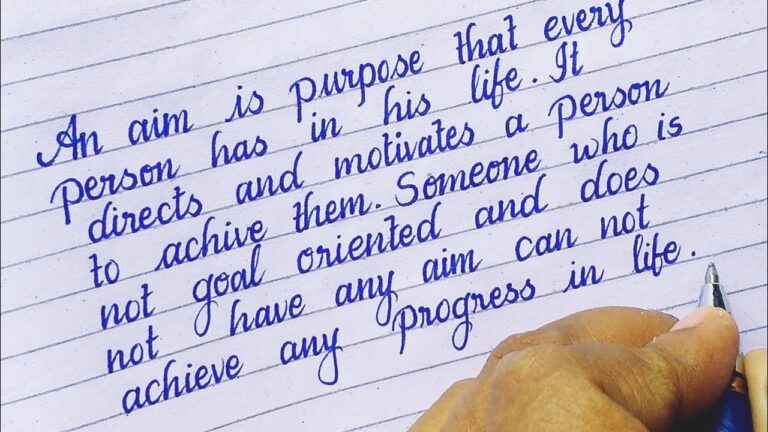 An aim is purpose that every
person has in his life. It
directs and motivates a person
to achive them. Someone who is
not goal oriented and does
not have any aim can not
achieve any progress in life.